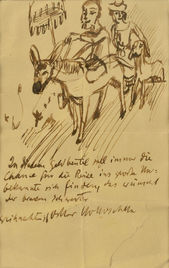 In diesem Geldbeutel soll immer die
Chance für die Reise ins große Un-
bekannte sich finden, das wünscht
der braven Schwester